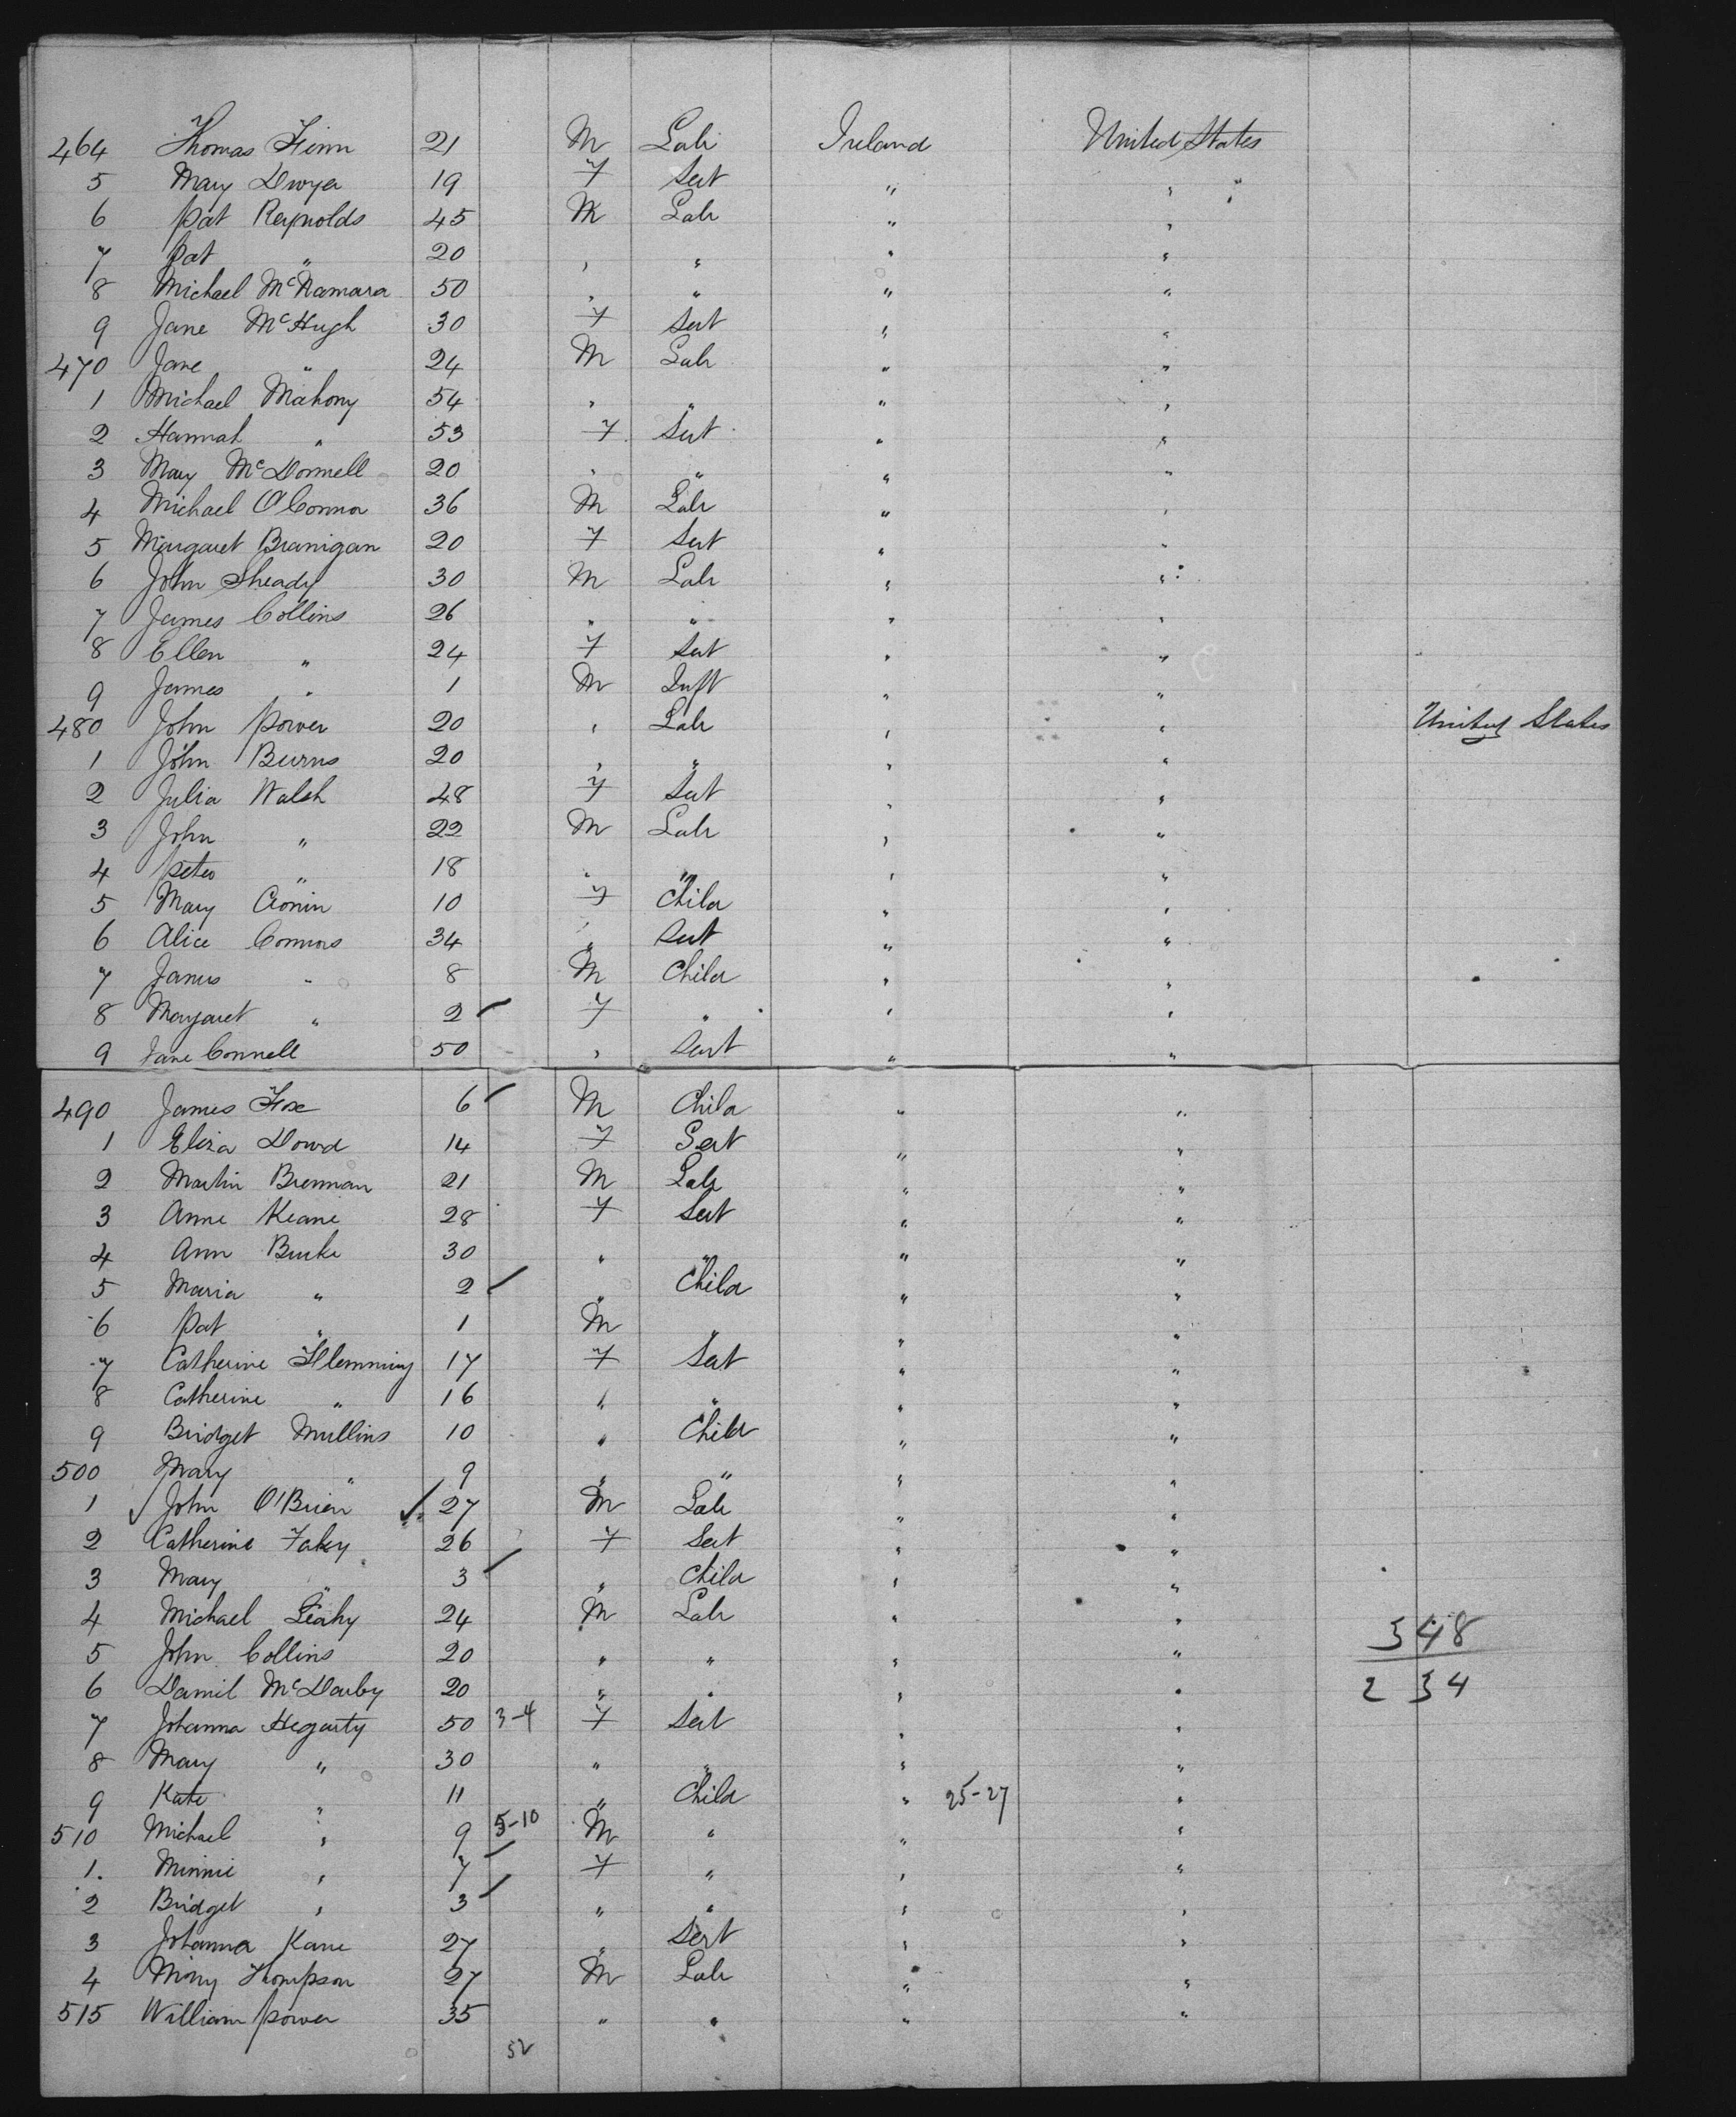 464 Thomas Finn 21 M Labr Ireland United States
5 Mary Dwyer 19 F Sert " "
6 Pat Reynolds 45 M Labr " "
7 Pat " 20 " " " "
8 Michael McNamara 50 " " " "
9 Jane McHugh 30 F Sert " "
470 Jane " 24 M Labr " "
1 Michael Mahony 54 " " " "
2 Hannah " 53 F Sert " "
3 Mary McDonnell 20 " " " "
4 Michael O'Connor 36 M Labr " "
5 Margaret Branigan 20 F Sert " "
6 John Sheady 30 M Labr " "
7 James Collins 26 " " " "
8 Ellen " 24 F Sert " "
9 James " 1 M Inft " "
480 John Power 20 " Labr " " United States
1 John Burns 20 " " " "
2 Julia Walsh 48 F Sert " "
3 John " 22 M Labr " "
4 Peter " 18 " " " "
5 Mary Cronin 10 F Child " "
6 Alice Connors 34 " Sert " "
7 James " 8 M Child " "
8 Margaret " 2 F " " "
9 Jane Connell 50 " Sert " "
490 James Fox 6 M Child " "
1 Eliza Dowd 14 F Sert " "
2 Martin Brennan 21 M Labr " "
3 Anne Keane 28 F Sert " "
4 Ann Burke 30 " " " "
5 Maria " 2 " Child " "
6 Pat " 1 M " " "
7 Catherine Flemming 17 F Sert " "
8 Catherine " 16 " " " "
9 Bridget Mullins 10 " Child " "
500 Mary " 9 " " " "
1 John O'Brien 27 M Labr " "
2 Catherine Fahey 26 F Sert " "
3 Mary " 3 " Child " "
4 Michael Leahy 24 M Labr " " 348
5 John Collins 20 " " " "
6 Daniel McDarby 20 " " " " 234
7 Johanna Hegarty 50 3-4 F Sert " "
8 Mary " 30 " " " "
9 Kate " 11 " Child " 25-27 "
510 Michael " 9 5-10 M " " "
1. Minnie " 7 F " " "
2 Bridget " 3 " " " "
3 Johanna Kane 27 " Sert " "
4 Thompson 27 M Labr " "
515 William Power 35 " " " "